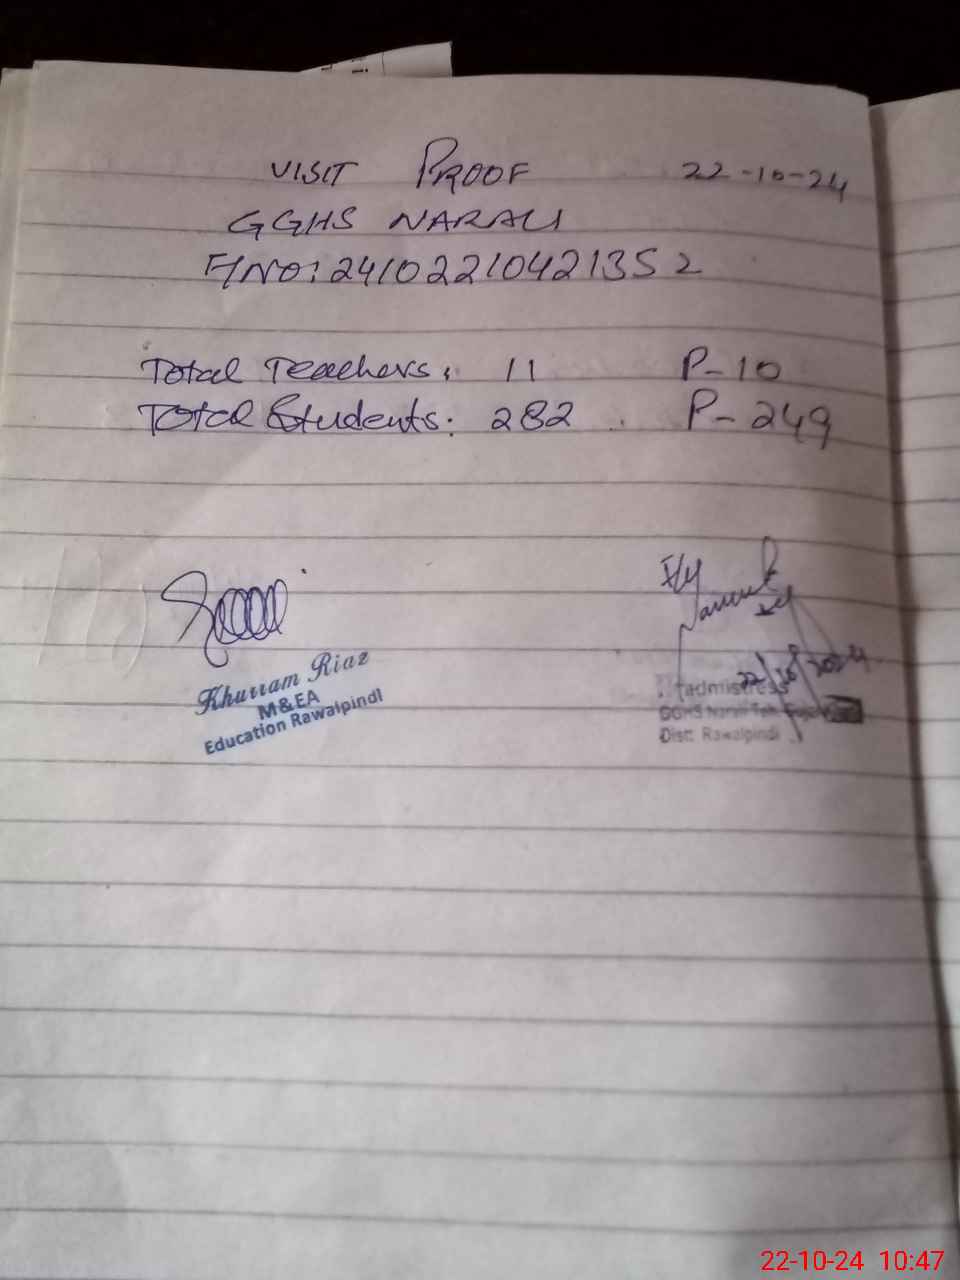 VISIT PROOF 22-10-24
GGHS NARALI
F/NO: 24102210421352
Total Teachers: 11 P-10
Total Students: 282 P-249
Khurram Riaz
M&EA
Education Rawalpindi
22/10/2024
Headmistress
GGHS Narali Teh.
Distt: Rawalpindi
22-10-24 10:47